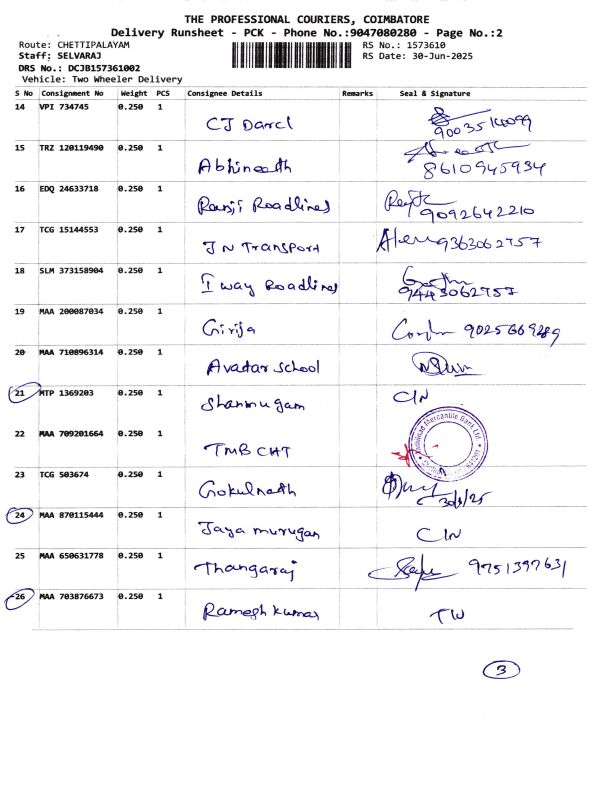 THE PROFESSIONAL COURIERS, COIMBATORE
Delivery Runsheet - PCK - Phone No.:9047080280 - Page No.:2
Route: CHETTIPALAYAM RS No.: 1573610
Staff: SELVARAJ RS Date: 30-Jun-2025
DRS No.: DCJB157361002
Vehicle: Two Wheeler Delivery
S No Consignment No Weight PCS Consignee Details Remarks Seal & Signature
14 VPI 734745 0.250 1 CJ Darcl 9003514099
15 TRZ 120119490 0.250 1 Abhineath 8610945934
16 EDQ 24633718 0.250 1 Ranji Roadlines 9092642210
17 TCG 15144553 0.250 1 JN Transport 9363062757
18 SLM 373158904 0.250 1 I way Roadlines 9443062757
19 MAA 200087034 0.250 1 Girija 9025669289
20 MAA 710896314 0.250 1 Avatar School
21 MTP 1369203 0.250 1 Shanmugam C/N
22 MAA 709201664 0.250 1 TMB CHT Mercantile Bank Ltd
23 TCG 503674 0.250 1 Gokulnath 30/6/25
24 MAA 870115444 0.250 1 Jaya murugan C/N
25 MAA 650631778 0.250 1 Thangaraj 9751397631
26 MAA 703876673 0.250 1 Ramesh kumar TW
3